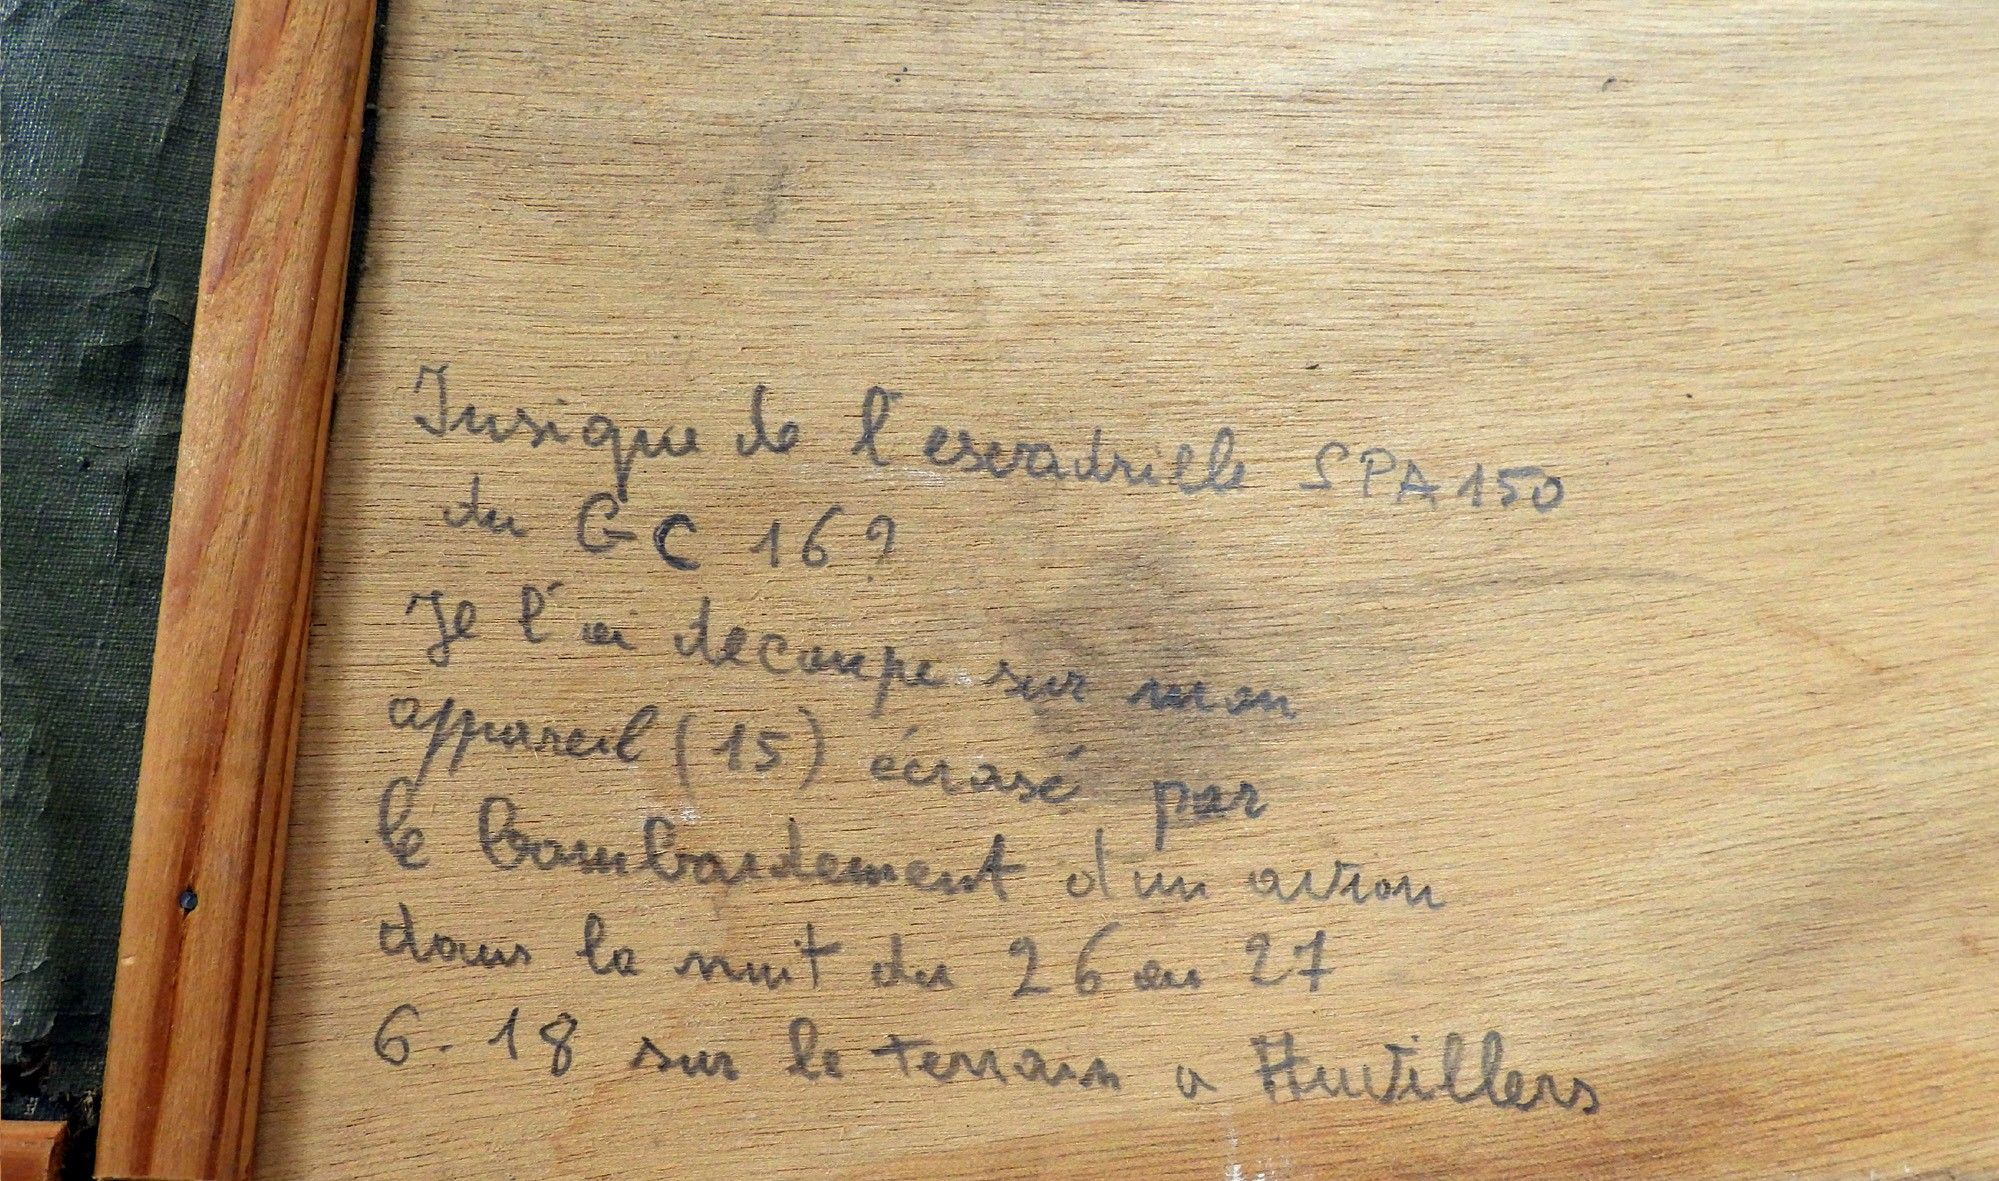 Insigne de l'escradrille SPA 150
du GC 16?
Je l'ai decoupe sur mon
appareil (15) écrasé par
le bombardement d'un avion
dans la nuit du 26 au 27
6.18 sur le terrain a Huvillers